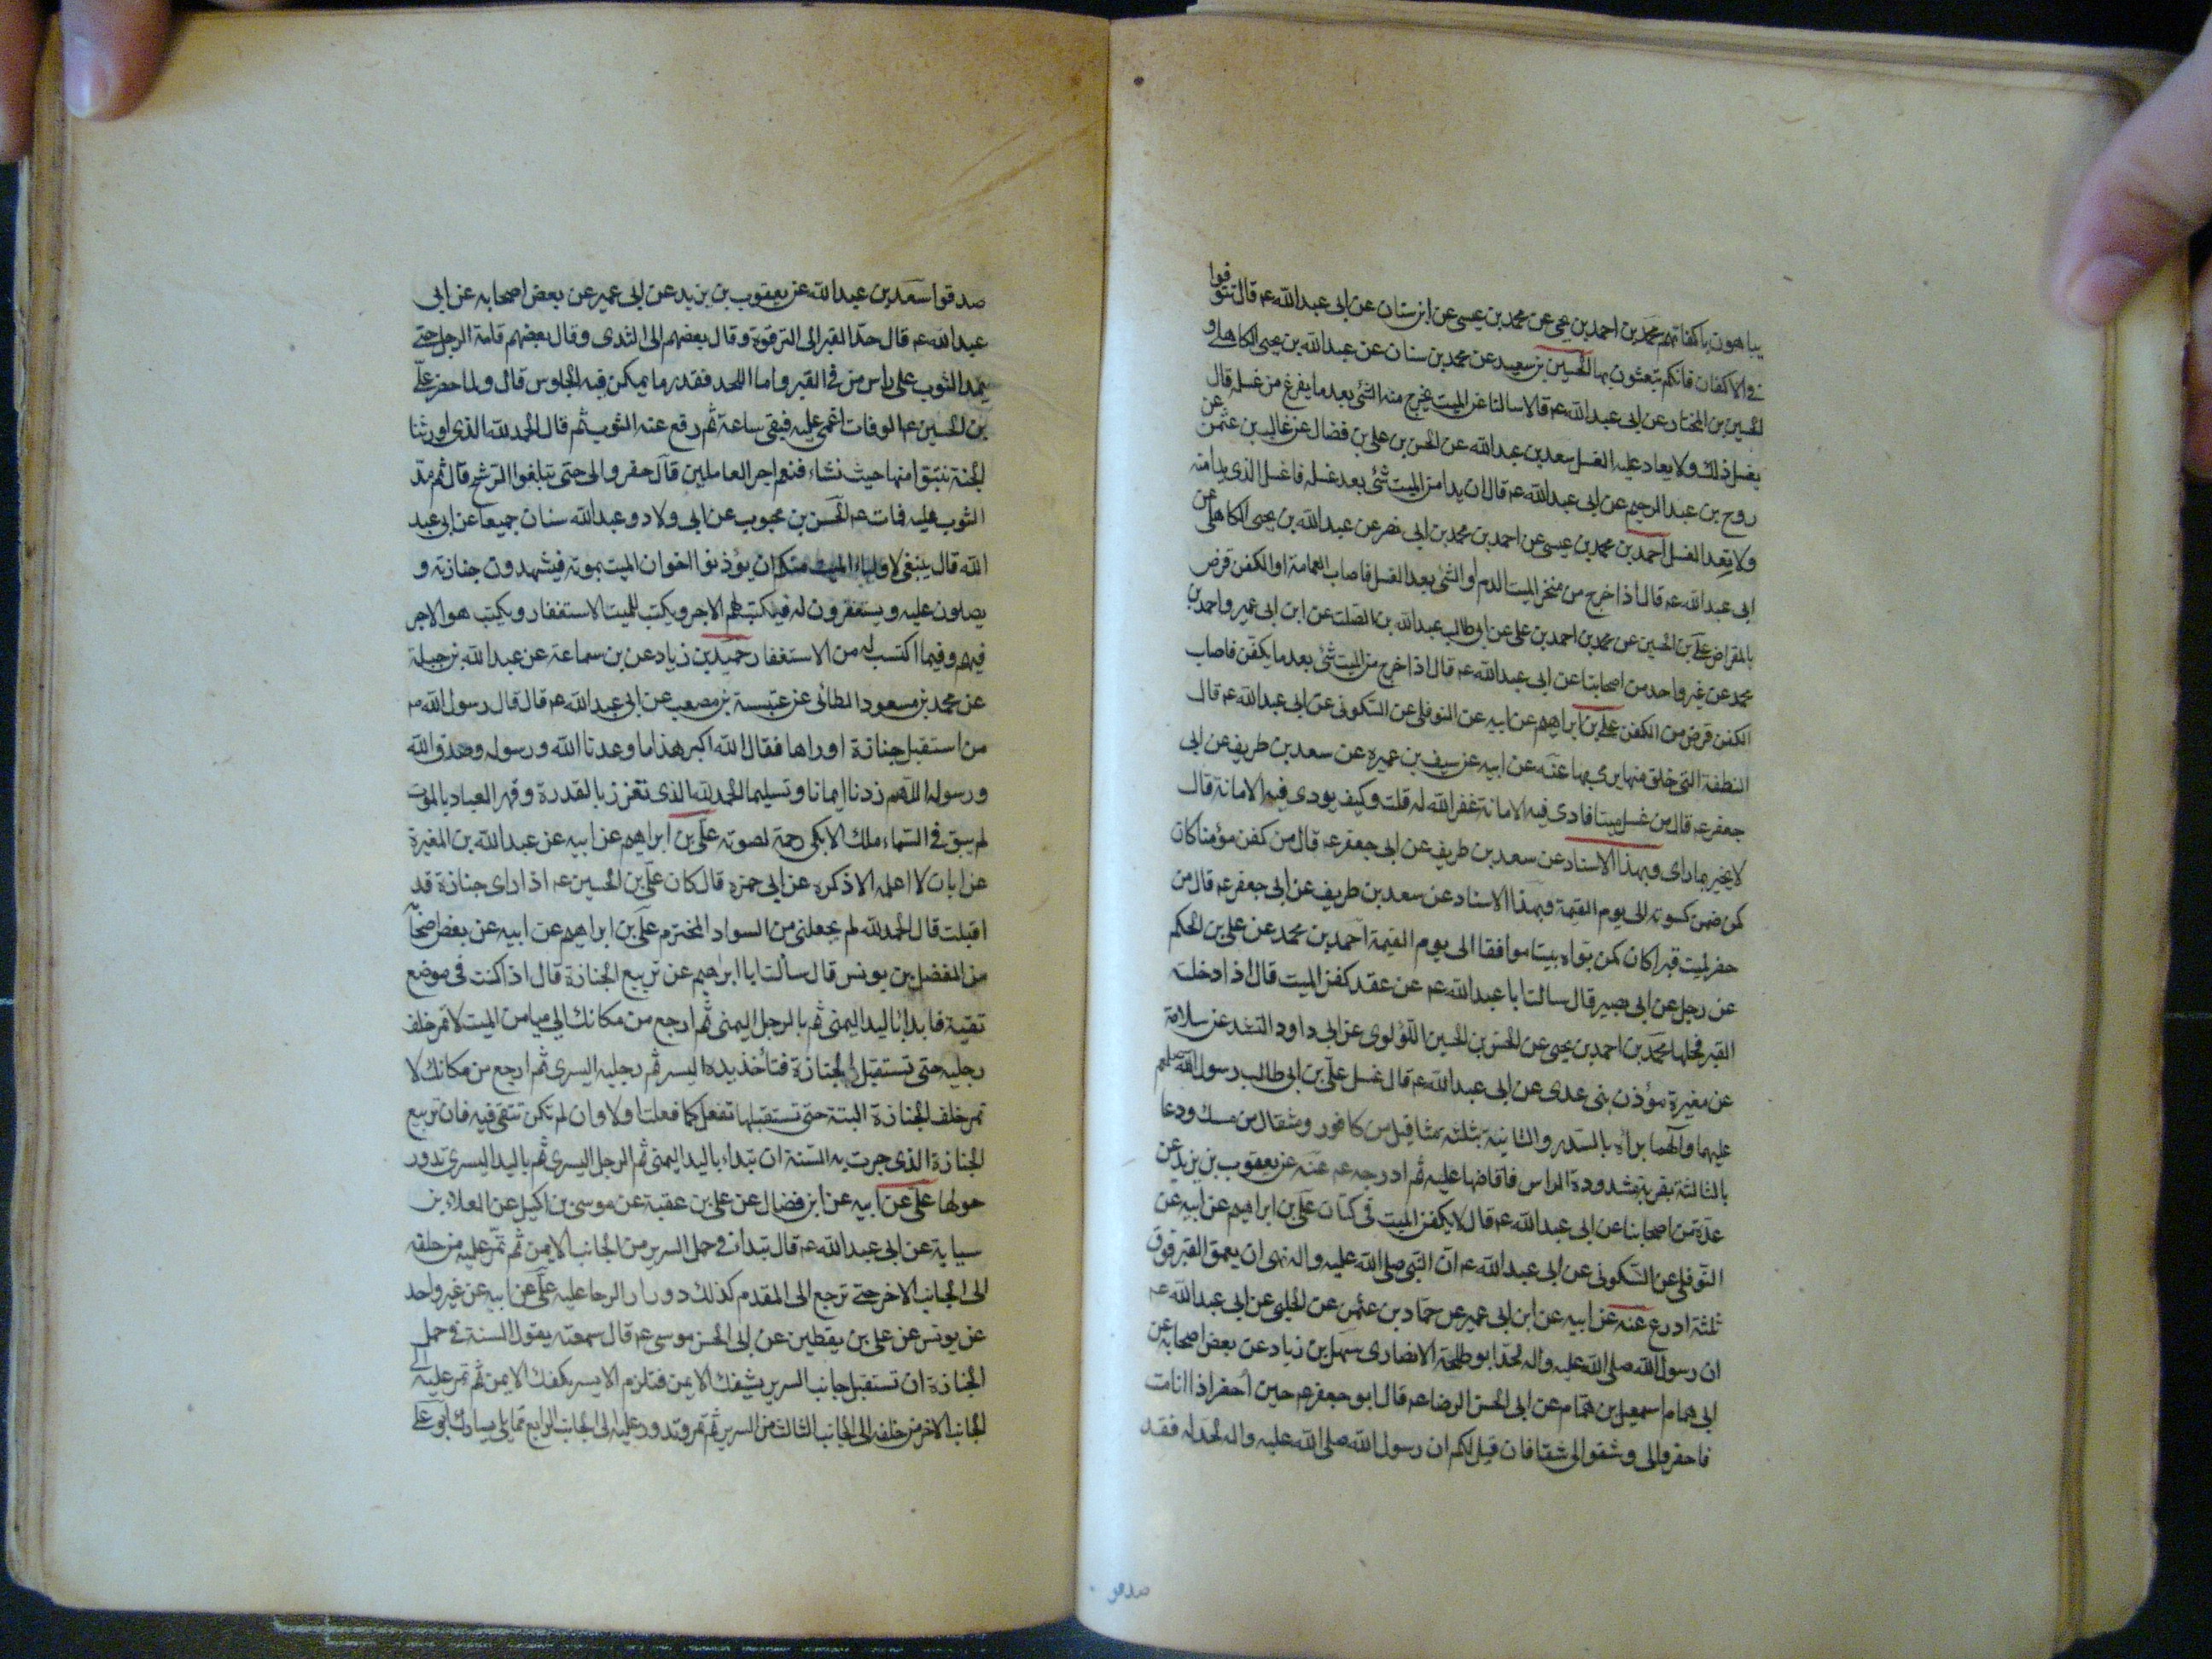 يباهون باكفانهم محمد بن احمد بن يحيى عن محمد بن عيسى عن ابن سنان عن ابى عبد الله عه قال تنوقوا
فى الاكفان فانكم تبعثون بها الحسين بن سعيد عن محمد بن سنان عن عبد الله بن يحيى الكاهلى و
الحسين بن المختار عن ابى عبد الله عه قالا سالناه عن الميت يخرج منه الشئ بعد ما يفرغ من غسله قال
يغسل ذلك ولا يعاد عليه الغسل سعد بن عبد الله عن الحسن بن على بن فضال عن غالب بن عثمن عن
روح بن عبد الرحيم عن ابى عبد الله عه قال ان بدا من الميت شئ بعد غسله فاغسل الذى بدا منه
ولا تعد الغسل احمد بن محمد بن عيسى عن احمد بن محمد بن ابى نصر عن عبد الله بن يحيى الكاهلى عن
ابى عبد الله عه قال اذا خرج من منخر الميت الدم او الشئ بعد الغسل فاصاب العمامة او الكفن قرض
بالمقراض على بن الحسين عن محمد بن احمد بن على عن ابى طالب عبد الله بن الصلت عن ابن ابى عمير واحمد بن
محمد عن غير واحد من اصحابنا عن ابى عبد الله عه قال اذا خرج من الميت شئ بعد ما يكفن فاصاب
الكفن قرض من الكفن على بن ابراهيم عن ابيه عن النوفلى عن السكونى عن ابى عبد الله عه قال
النطفة التى خلق منها يرمى بها عنه عن ابيه عن سيف بن عميره عن سعد بن طريف عن ابى
جعفر عه قال من غسل ميتا فادى فيه الامانة غفر الله له قلت وكيف يودى فيه الامانة قال
لا يخبر بما راى وبهذا الاسناد عن سعد بن طريف عن ابى جعفر عه قال من كفن مؤمنا كان
كمن ضمن كسوته الى يوم القيمة وبهذا الاسناد عن سعد بن طريف عن ابى جعفر عه قال من
حفر لميت قبرا كان كمن بواه بيتا موافقا الى يوم القيمة احمد بن محمد عن على بن الحكم
عن رجل عن ابى بصير قال سالت ابا عبد الله عه عن عقد كفن الميت قال اذا ادخلت
القبر فحلها محمد بن احمد بن يحيى عن الحسن بن الحسين اللؤلوى عن ابى داود عن سلامة
عن مغيرة مؤذن بنى عدى عن ابى عبد الله عه قال غسل على بن ابى طالب رسول الله صلعم
عليهما وآلهما براه بالسدر والثانية بثلثه مثاقيل من كافور ومثقال من مسك ودعا
بالثالثة بقربة مشدودة الراس فافاضها عليه ثم ادرجه عه عنه عن يعقوب بن يزيد عن
عدة من اصحابنا عن ابى عبد الله عه قال لا يكفن الميت فى كتان على بن ابراهيم عن ابيه عن
النوفلى عن السكونى عن ابى عبد الله عه ان النبى صلى الله عليه واله نهى ان يعمق القبر فوق
ثلثة ادرع عنه عن ابيه عن ابن ابى عمير عن حماد بن عثمن عن الحلبى عن ابى عبد الله عه
ان رسول الله صلى الله عليه واله لحد ابو طلحة الانصارى سهل بن زياد عن بعض اصحابه عن
ابى همام اسمعيل بن همام عن ابى الحسن الرضا عه قال ابو جعفر عه حين احضر اذا انامت
فاحفروا لى وشقوا لى شقا فان قيل لكم ان رسول الله صلى الله عليه واله لحد له فقد
صدقوا
صدقوا سعد بن عبد الله عن يعقوب بن يزيد عن ابى عمير عن بعض اصحابه عن ابى
عبد الله عه قال حد القبر الى الترقوة وقال بعضهم الى الثدى وقال بعضهم قامة الرجل حتى
يمد الثوب على راس من فى القبر واما اللحد فقدر ما يمكن فيه الجلوس قال ولما حضر على
بن الحسين عه الوفات اغمى عليه فبقى ساعة ثم رفع عنه الثوب ثم قال الحمد لله الذى اورثنا
الجنة نتبؤ منها حيث نشاء فنعم اجر العاملين قال حفروا لى حتى تبلغوا الرشح قال ثم مد
الثوب عليه فمات عه الحسن بن محبوب عن ابى ولاد وعبد الله سنان جميعا عن ابى عبد
الله قال ينبغى لاولياء الميت منكم ان يؤذنوا اخوان الميت بموته فيشهدون جنازته و
يصلون عليه ويستغفرون له فيكتب لهم الاجر ويكتب للميت الاستغفار ويكتب هو الاجر
فيهم وفيما اكتسب له من الاستغفار حميد بن زياد عن بن سماعة عن عبد الله بن جبلة
عن محمد بن مسعود الطائى عن عنبسة بن مصعب عن ابى عبد الله عه قال قال رسول الله صه
من استقبل جنازة او راها فقال الله اكبر هذا ما وعدنا الله ورسوله وصدق الله
ورسوله اللهم زدنا ايمانا وتسليما الحمد لله الذى تعزز بالقدرة وقهر العباد بالموت
لم يبق فى السماء ملك الا بكى رحمة لصوته على بن ابراهيم عن ابيه عن عبد الله بن المغيرة
عن ابان لا اعلمه الا ذكره عن ابى حمزه قال كان على بن الحسين عه اذا راى جنازة قد
اقبلت قال الحمد لله لم يجعلنى من السواد المخترم على بن ابراهيم عن ابيه عن بعض اصحابه
من المفضل بن يونس قال سألت ابا ابراهيم عن تربيع الجنازة قال اذا كنت فى موضع
تقية فابدأ باليد اليمنى ثم بالرجل اليمنى ثم ارجع من مكانك الى ميامن الميت لا تمر خلف
رجليه حتى تستقبل الجنازة فتأخذ يده اليسر ثم رجليه اليسرى ثم ارجع من مكانك لا
تمر خلف الجنازة البتة حتى تستقبلها تفعل كما فعلت اولا وان لم تكن تتقى فيه فان تربيع
الجنازة الذى جرت به السنة ان تبداء باليد اليمنى ثم الرجل اليسرى ثم باليد اليسرى تدور
حولها على عن ابيه عن ابن فضال عن على بن عقبة عن موسى بن اكيل عن العلاء بن
سيابة عن ابى عبد الله عه قال تبدأ فى حمل السرير من الجانب الايمن ثم تمر عليه من خلفه
الى الجانب الاخر حتى ترجع الى المقدم كذلك دوران الرحا عليه على عن ابيه عن غير واحد
عن يونس عن على بن يقطين عن ابى الحسن موسى عه قال سمعته يقول السنة فى حمل
الجنازة ان تستقبل جانب السرير بشقك الايمن فتلزم الايسر بكفك الايمن ثم تمر عليه الى
الجانب الاخر من خلفه الى الجانب الثالث من السرير ثم تمر وتدور عليه الى الجانب الرابع مما يلى يسارك ابو على